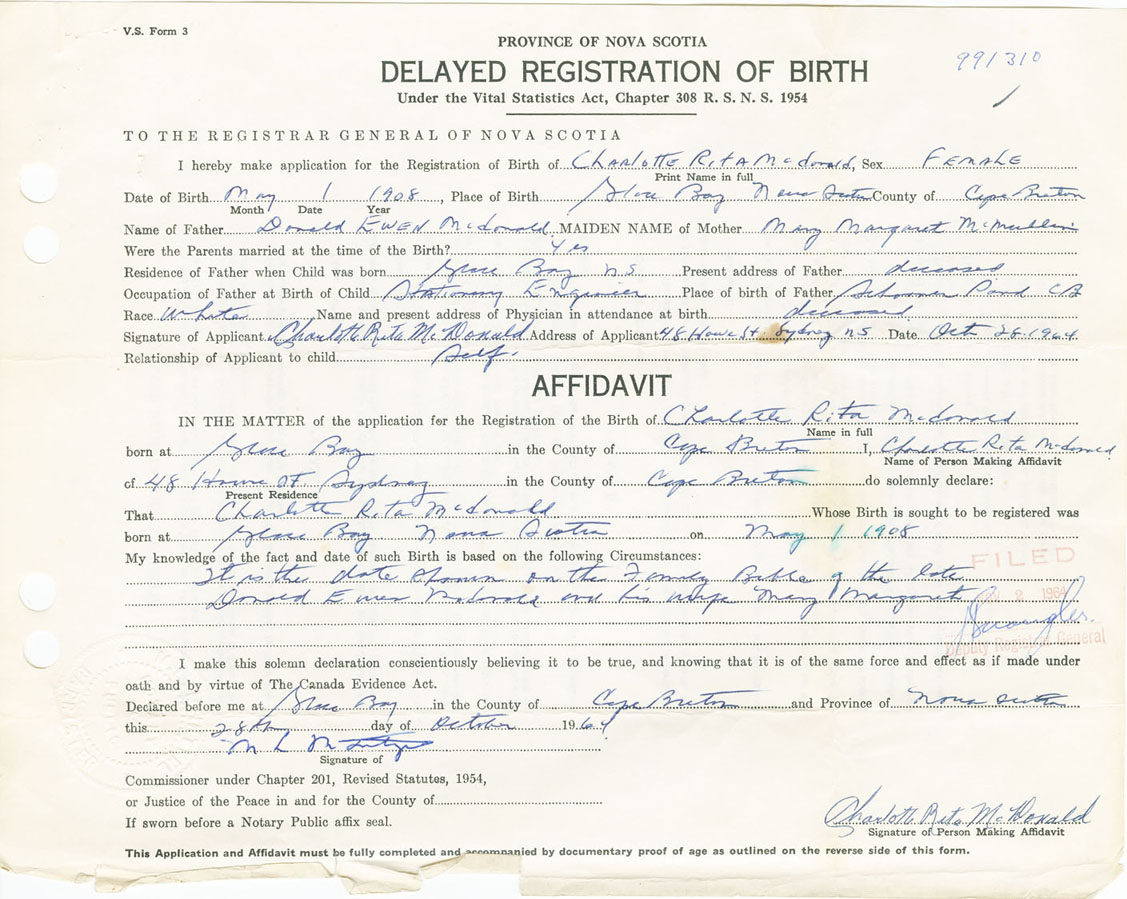 V.S. Form 3
PROVINCE OF NOVA SCOTIA
991310
DELAYED REGISTRATION OF BIRTH
Under the Vital Statistics Act, Chapter 308 R. S. N. S. 1954
TO THE REGISTRAR GENERAL OF NOVA SCOTIA
I hereby make application for the Registration of Birth of Charlotte Rita McDonald, Sex Female
Print Name in full
Date of Birth May 1 1908, Place of Birth Glace Bay Nova Scotia County of Cape Breton
Month Date Year
Name of Father Donald Ewen McDonald MAIDEN NAME of Mother Mary Margaret McMullin
Were the Parents married at the time of the Birth? Yes
Residence of Father when Child was born Glace Bay N.S. Present address of Father deceased
Occupation of Father at Birth of Child Stationary Enginier Place of birth of Father Schooner Pond CB
Race White Name and present address of Physician in attendance at birth deceased
Signature of Applicant Charlotte Rita McDonald Address of Applicant 48 Howe St. Sydney N.S Date Oct 28 1964
Relationship of Applicant to child Self.
AFFIDAVIT
IN THE MATTER of the application for the Registration of the Birth of Charlotte Rita McDonald
Name in full
born at Glace Bay in the County of Cape Breton I, Charlotte Rita McDonald
Name of Person Making Affidavit
of 48 Howe St. Sydney in the County of Cape Breton do solemnly declare:
Present Residence
That Charlotte Rita McDonald Whose Birth is sought to be registered was
born at Glace Bay Nova Scotia on May 1 1908
My knowledge of the fact and date of such Birth is based on the following Circumstances:
FILED
It is the date shown on the Family Bible of the late
Donald Ewen McDonald and his wife Mary Margaret
2 1964
Deputy Registrar General
I make this solemn declaration conscientiously believing it to be true, and knowing that it is of the same force and effect as if made under
oath and by virtue of The Canada Evidence Act.
Declared before me at Glace Bay in the County of Cape Breton and Province of Nova Scotia
this 28th day of October 1964
M L
Signature of
Commissioner under Chapter 201, Revised Statutes, 1954,
or Justice of the Peace in and for the County of
If sworn before a Notary Public affix seal.
Charlotte Rita McDonald
Signature of Person Making Affidavit
This Application and Affidavit must be fully completed and accompanied by documentary proof of age as outlined on the reverse side of this form.